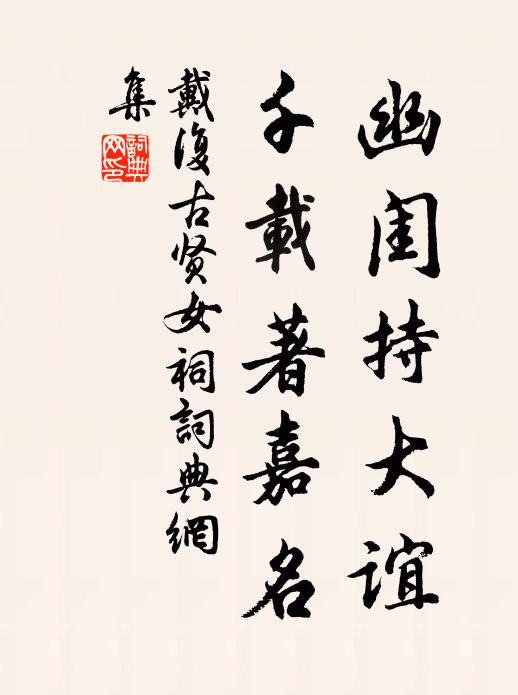 幽闺持大谊
千載著嘉名
戴復古贤女祠詞典網
集
詞典网印